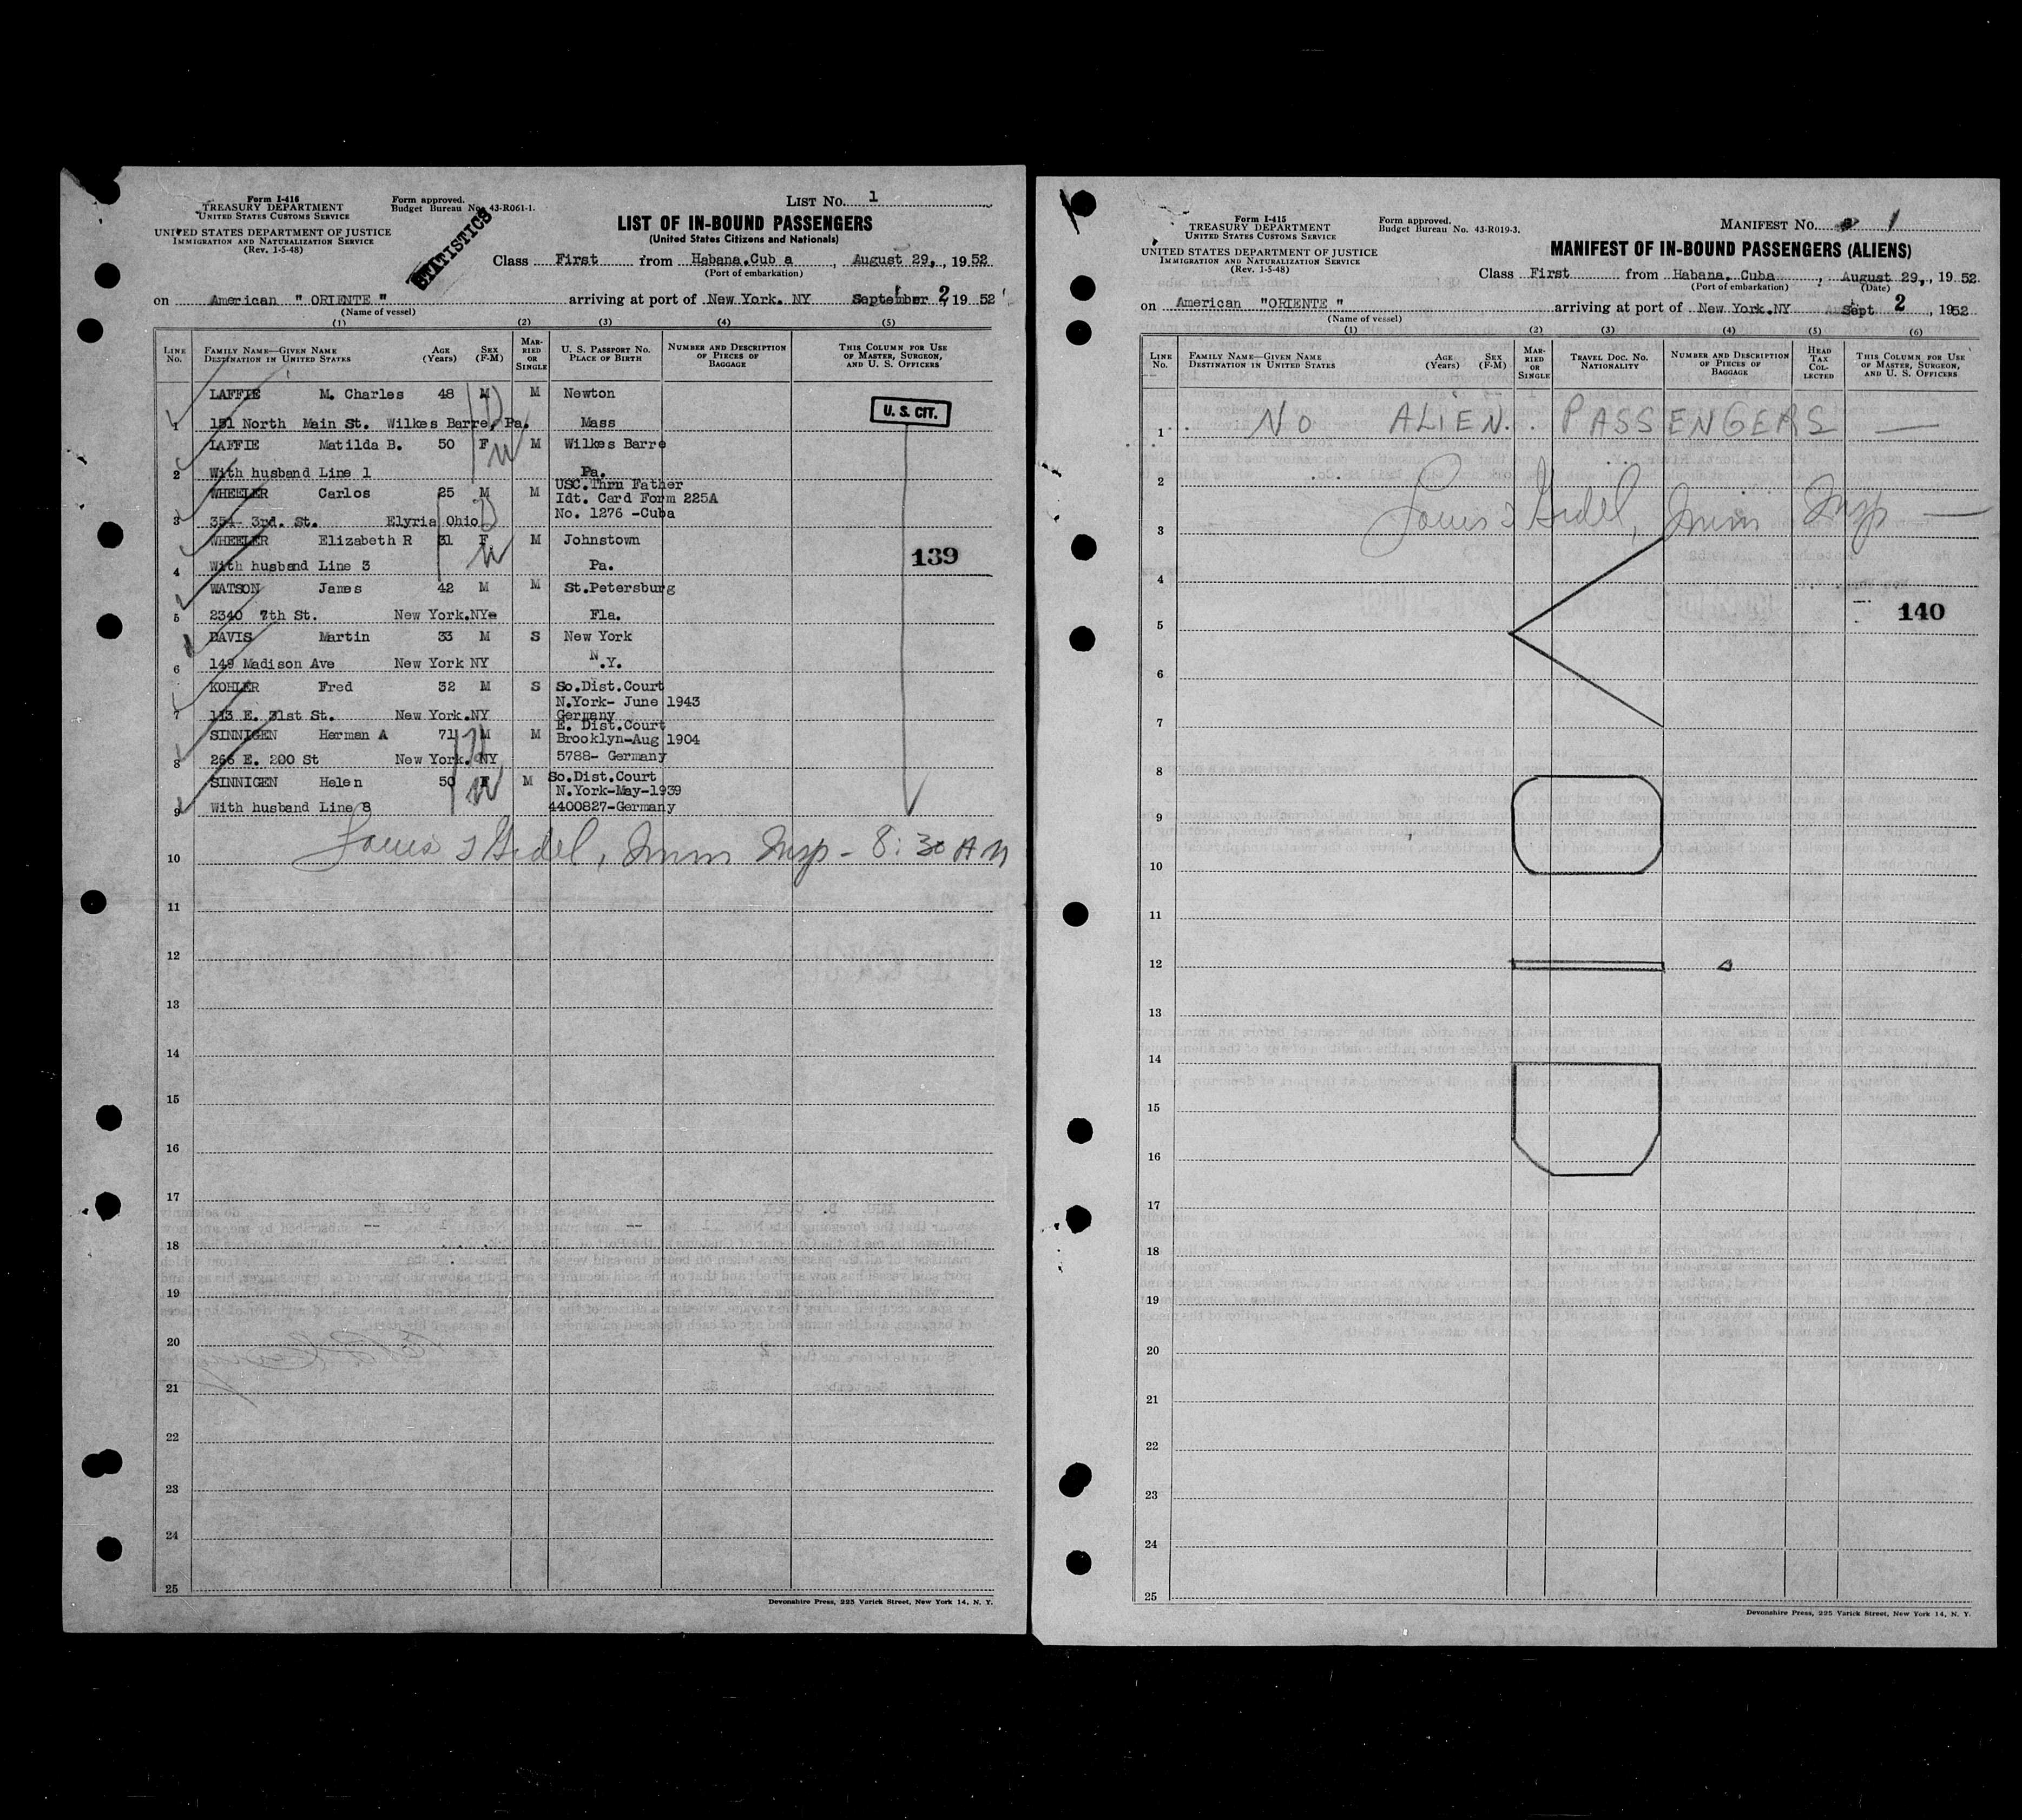 Form I-416
TREASURY DEPARTMENT
UNITED STATES CUSTOMS SERVICE
UNITED STATES DEPARTMENT OF JUSTICE
IMMIGRATION AND NATURALIZATION SERVICE
(Rev. 1-5-48)
Form approved.
Budget Bureau No. 43-R061-1.
STATISTICS
LIST No. 1
LIST OF IN-BOUND PASSENGERS
(United States Citizens and Nationals)
Class First from Habana.Cub a, August 29, 1952
(Port of embarkation)
on American " ORIENTE " arriving at port of New York. NY September 2, 1952
(Name of vessel)
(1) (2) (3) (4) (5)
LINE No. FAMILY NAME—GIVEN NAME DESTINATION IN UNITED STATES AGE (Years) SEX (F-M) MARRIED OR SINGLE U. S. PASSPORT No. PLACE OF BIRTH NUMBER AND DESCRIPTION OF PIECES OF BAGGAGE THIS COLUMN FOR USE OF MASTER, SURGEON, AND U. S. OFFICERS
LAFFIE M. Charles 48 M M Newton
U. S. CIT.
1 151 North Main St. Wilkes Barre, Pa. Mass
LAFFIE Matilda B. 50 F M Wilkes Barre
2 With husband Line 1 Pa.
WHEELER Carlos 25 M M USC.Thru Father
Idt. Card Form 225A
No. 1276 -Cuba
3 354- 3rd. St. Elyria Ohio
WHEELER Elizabeth R 31 F M Johnstown
139
4 With husband Line 3 Pa.
WATSON James 42 M M St.Petersburg
5 2340 7th St. New York.NY Fla.
DAVIS Martin 33 M S New York
6 149 Madison Ave New York NY N.Y.
KOHLER Fred 32 M S So.Dist.Court
N.York- June 1943
7 143 E. 31st St. New York.NY Germany
SINNIGEN Herman A 71 M M E. Dist.Court
Brooklyn-Aug 1904
8 266 E. 200 St New York. NY 5788- Germany
SINNIGEN Helen 50 F M So.Dist.Court
N.York-May-1939
9 With husband Line 8 4400827-Germany
10 Immn Insp - 8:30 AM
11
12
13
14
15
16
17
18
19
20
21
22
23
24
25
Devonshire Press, 225 Varick Street, New York 14, N. Y.
Form I-415
TREASURY DEPARTMENT
UNITED STATES CUSTOMS SERVICE
UNITED STATES DEPARTMENT OF JUSTICE
IMMIGRATION AND NATURALIZATION SERVICE
(Rev. 1-5-48)
Form approved.
Budget Bureau No. 43-R019-3.
MANIFEST No. 1
MANIFEST OF IN-BOUND PASSENGERS (ALIENS)
Class First from Habana. Cuba, August 29, 1952
(Port of embarkation) (Date)
on American "ORIENTE " arriving at port of New York.NY Sept 2, 1952
(Name of vessel)
(1) (2) (3) (4) (5) (6)
LINE No. FAMILY NAME—GIVEN NAME DESTINATION IN UNITED STATES AGE (Years) SEX (F-M) MARRIED OR SINGLE TRAVEL DOC. No. NATIONALITY NUMBER AND DESCRIPTION OF PIECES OF BAGGAGE HEAD TAX COLLECTED THIS COLUMN FOR USE OF MASTER, SURGEON, AND U. S. OFFICERS
1 NO ALIEN PASSENGERS —
2
3 Immn Insp —
4
5 140
6
7
8
9
10
11
12
13
14
15
16
17
18
19
20
21
22
23
24
25
Devonshire Press, 225 Varick Street, New York 14, N. Y.